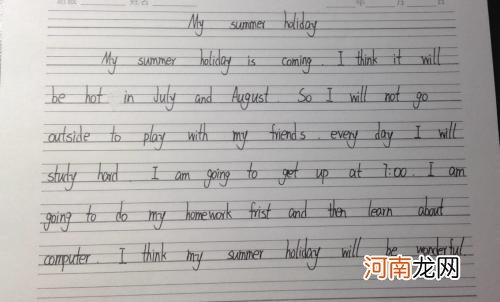 班级 姓名 年 月 日
My summer holiday
My summer holiday is coming. I think it will
be hot in July and August. So I will not go
outside to play with my friends. every day I will
study hard. I am going to get up at 7:00. I am
going to do my homework frist and then learn about
computer. I think my summer holiday will be wonderful.
河南龙网